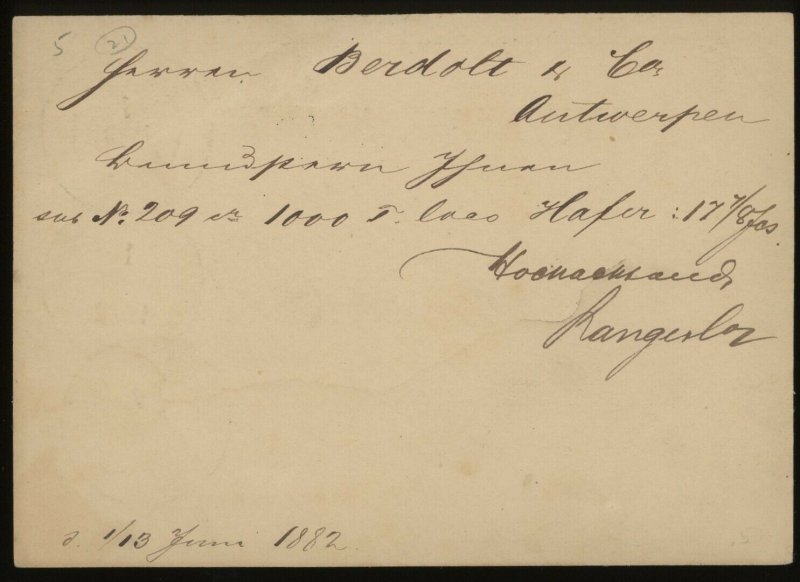 5 21
Herren Berdolt & Co.
Antwerpen
Bemustern Ihnen
sub No. 209 ca 1000 T. loco Hafer : 17 7/8 fcs.
Hochachtend
d. 1/13 Juni 1882.